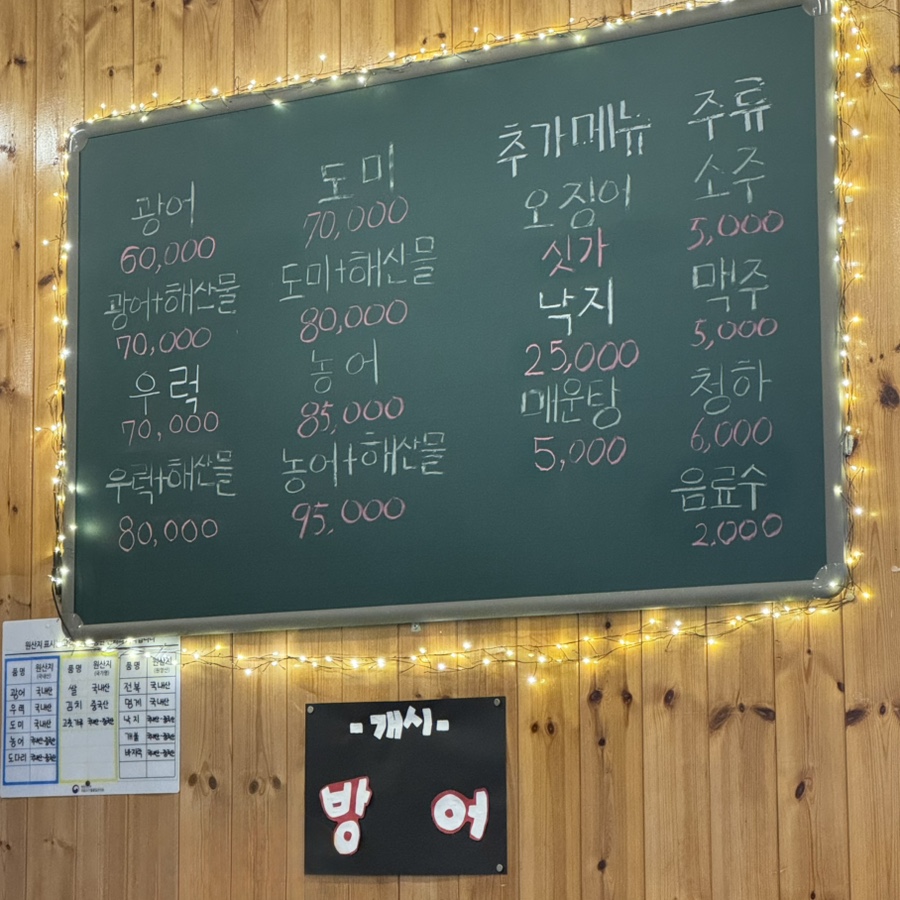 광어
60,000
광어+해산물
70,000
우럭
70,000
우럭+해산물
80,000
도미
70,000
도미+해산물
80,000
농어
85,000
농어+해산물
95,000
추가메뉴
오징어
싯가
낙지
25,000
매운탕
5,000
주류
소주
5,000
맥주
5,000
청하
6,000
음료수
2,000
원산지
품명 원산지 품명 원산지 품명 원산지
광어 국내산 쌀 국내산 전복 국내산
우럭 국내산 김치 중국산 멍게 국내산
도미 국내산 낙지
농어
도다리
-개시-
방어